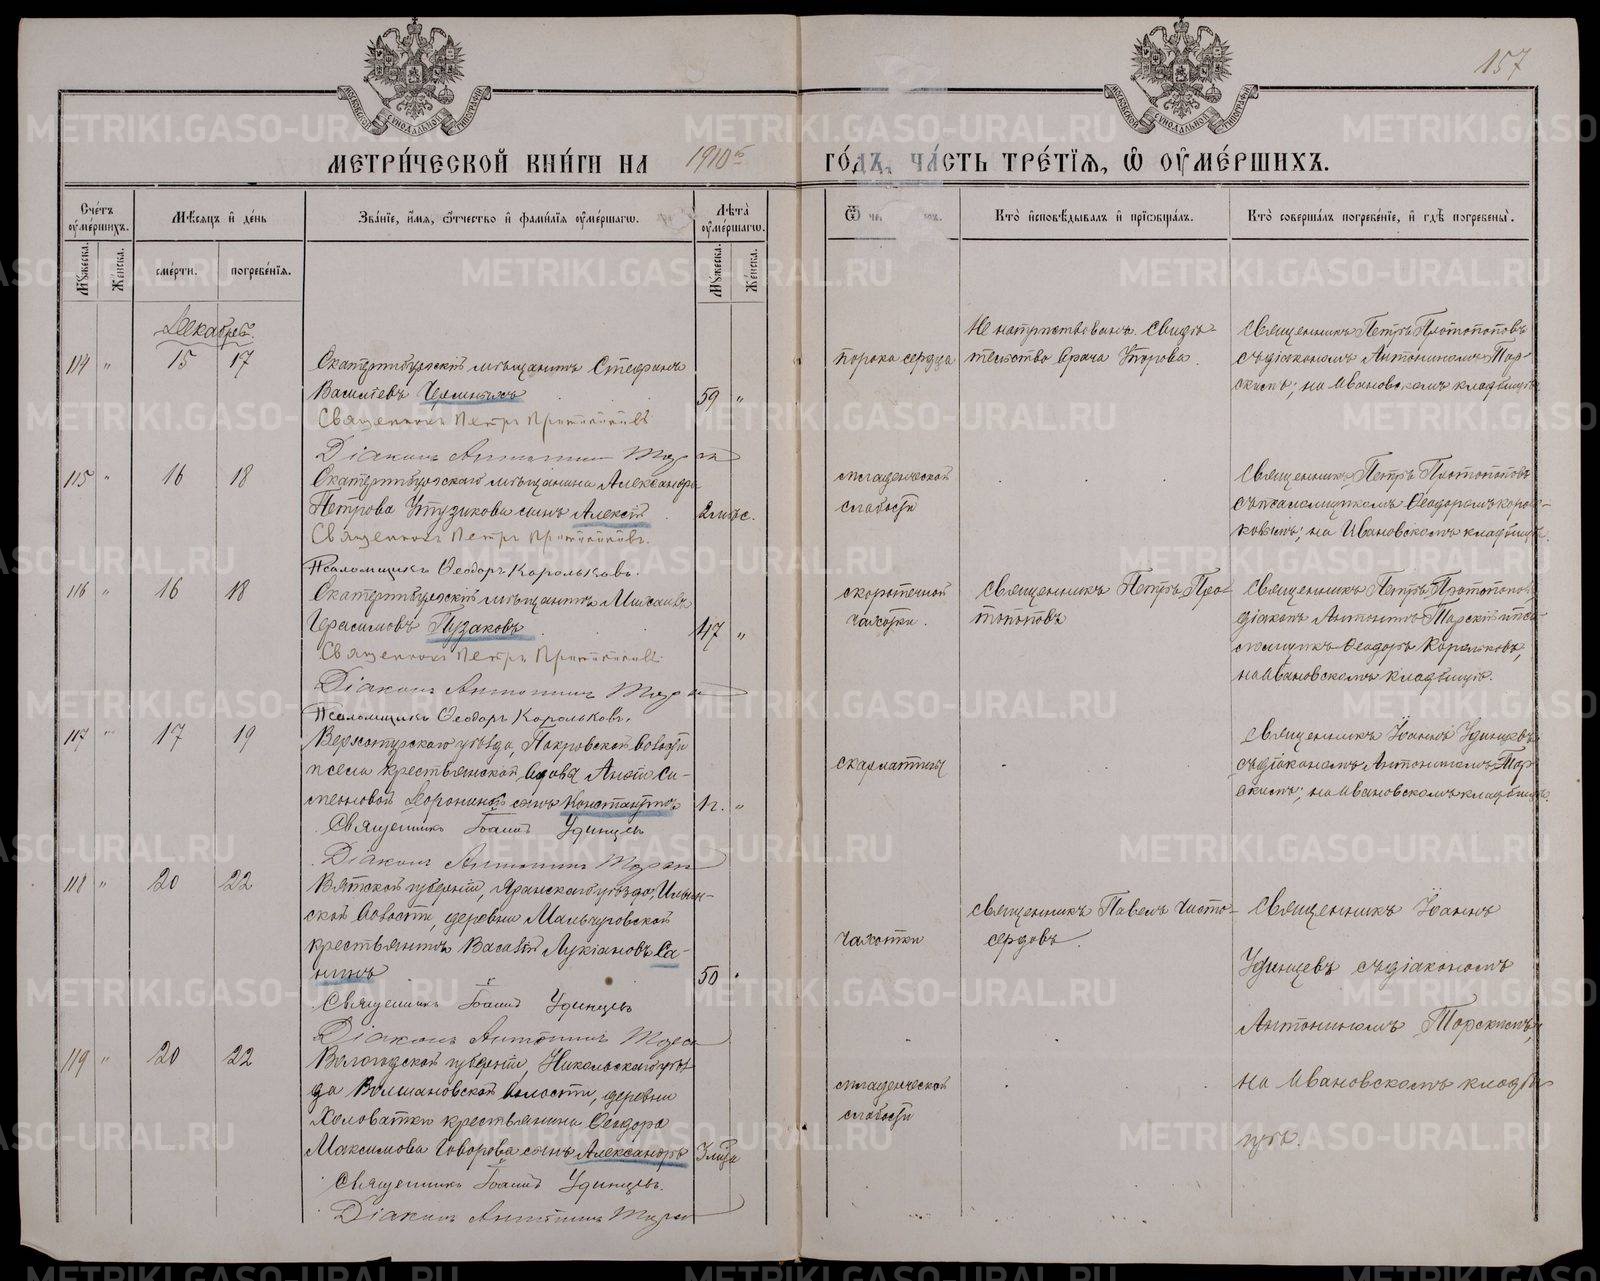 157
МЕТРИ́ЧЕСКОЙ КНИ́ГИ НА 1910й ГО́ДЪ, ЧА́СТЬ ТРЕ́ТІЯ, Ѽ ОУМЕ́РШИХЪ.
Сче́тъ оуме́ршихъ.
Мꙋжеска.
Же́нска.
Мѣ́сѧцъ и҆ де́нь
сме́рти.
погребе́нїѧ.
Зва́нїе, и҆́мѧ, ѻ҆́тчество и҆ фами́лїѧ оуме́ршагѡ.
Лѣ́та оуме́ршагѡ.
Мꙋ́жеска.
Же́нска.
Ѿ че
Кто̀ и҆сповѣ́дывалъ и҆ прїѡбща́лъ.
Кто̀ соверша́лъ погребе́нїе, и҆ гдѣ̀ погребены̀.
Декабрь.
114 " 15 17
Екатеринбургскій мѣщанинъ Стефанъ
Васильевъ
59 "
Священникъ Петръ Протопоповъ
Діаконъ Антонинъ Торскій
порока сердца
Не напутствованъ. Свидѣ-
тельство врача
Священникъ Петръ Протопоповъ
съ діакономъ Антониномъ Тор-
скимъ; на Ивановскомъ кладбищѣ
115 " 16 18
Екатеринбургскаго мѣщанина Александра
Петрова Утузикова сынъ Алексій
2 мѣс.
Священникъ Петръ Протопоповъ.
Псаломщикъ Ѳеодоръ Корольковъ.
младенческой
слабости
Священникъ Петръ Протопоповъ
съ псаломщикомъ Ѳеодоромъ Король-
ковымъ; на Ивановскомъ кладбищѣ.
116 " 16 18
Екатеринбургскій мѣщанинъ Михаилъ
Герасимовъ Пузаковъ
47 "
Священникъ Петръ Протопоповъ
Діаконъ Антонинъ Торскій
Псаломщикъ Ѳеодоръ Корольковъ.
скоротечной
чахотки.
Священникъ Петръ Про-
топоповъ
Священникъ Петръ Протопоповъ
діаконъ Антонинъ Торскій и пса-
ломщикъ Ѳеодоръ Корольковъ,
на Ивановскомъ кладбищѣ.
117 " 17 19
Верхотурскаго уѣзда, Покровской волости
и села крестьянской вдовы Анны Си-
меоновой Дорониной сынъ Константинъ
1 г. "
Священникъ Іоаннъ Удинцевъ
Діаконъ Антонинъ Торскій
скарлатины
Священникъ Іоаннъ Удинцевъ
съ діакономъ Антониномъ Тор-
скимъ; на Ивановскомъ кладбищѣ.
118 " 20 22
Вятской губерніи, Яранскаго уѣзда, Ильин-
ской волости, деревни Мальчуговской
крестьянинъ Василій Лукіановъ Са-
нинъ
50
Священникъ Іоаннъ Удинцевъ
Діаконъ Антонинъ Торскій
чахотки
Священникъ Павелъ Чисто-
сердовъ.
Священникъ Іоаннъ
Удинцевъ съ діакономъ
Антониномъ Торскимъ,
на Ивановскомъ кладби-
щѣ.
119 " 20 22
Вологодской губерніи, Никольскаго уѣз-
да Вомановской волости, деревни
Холоватки крестьянина Ѳеодора
Максимова Говорова сынъ Александръ
3 мѣсяца
Священникъ Іоаннъ Удинцевъ.
Діаконъ Антонинъ Торскій
младенческой
слабости
METRIKI.GASO-URAL.RU